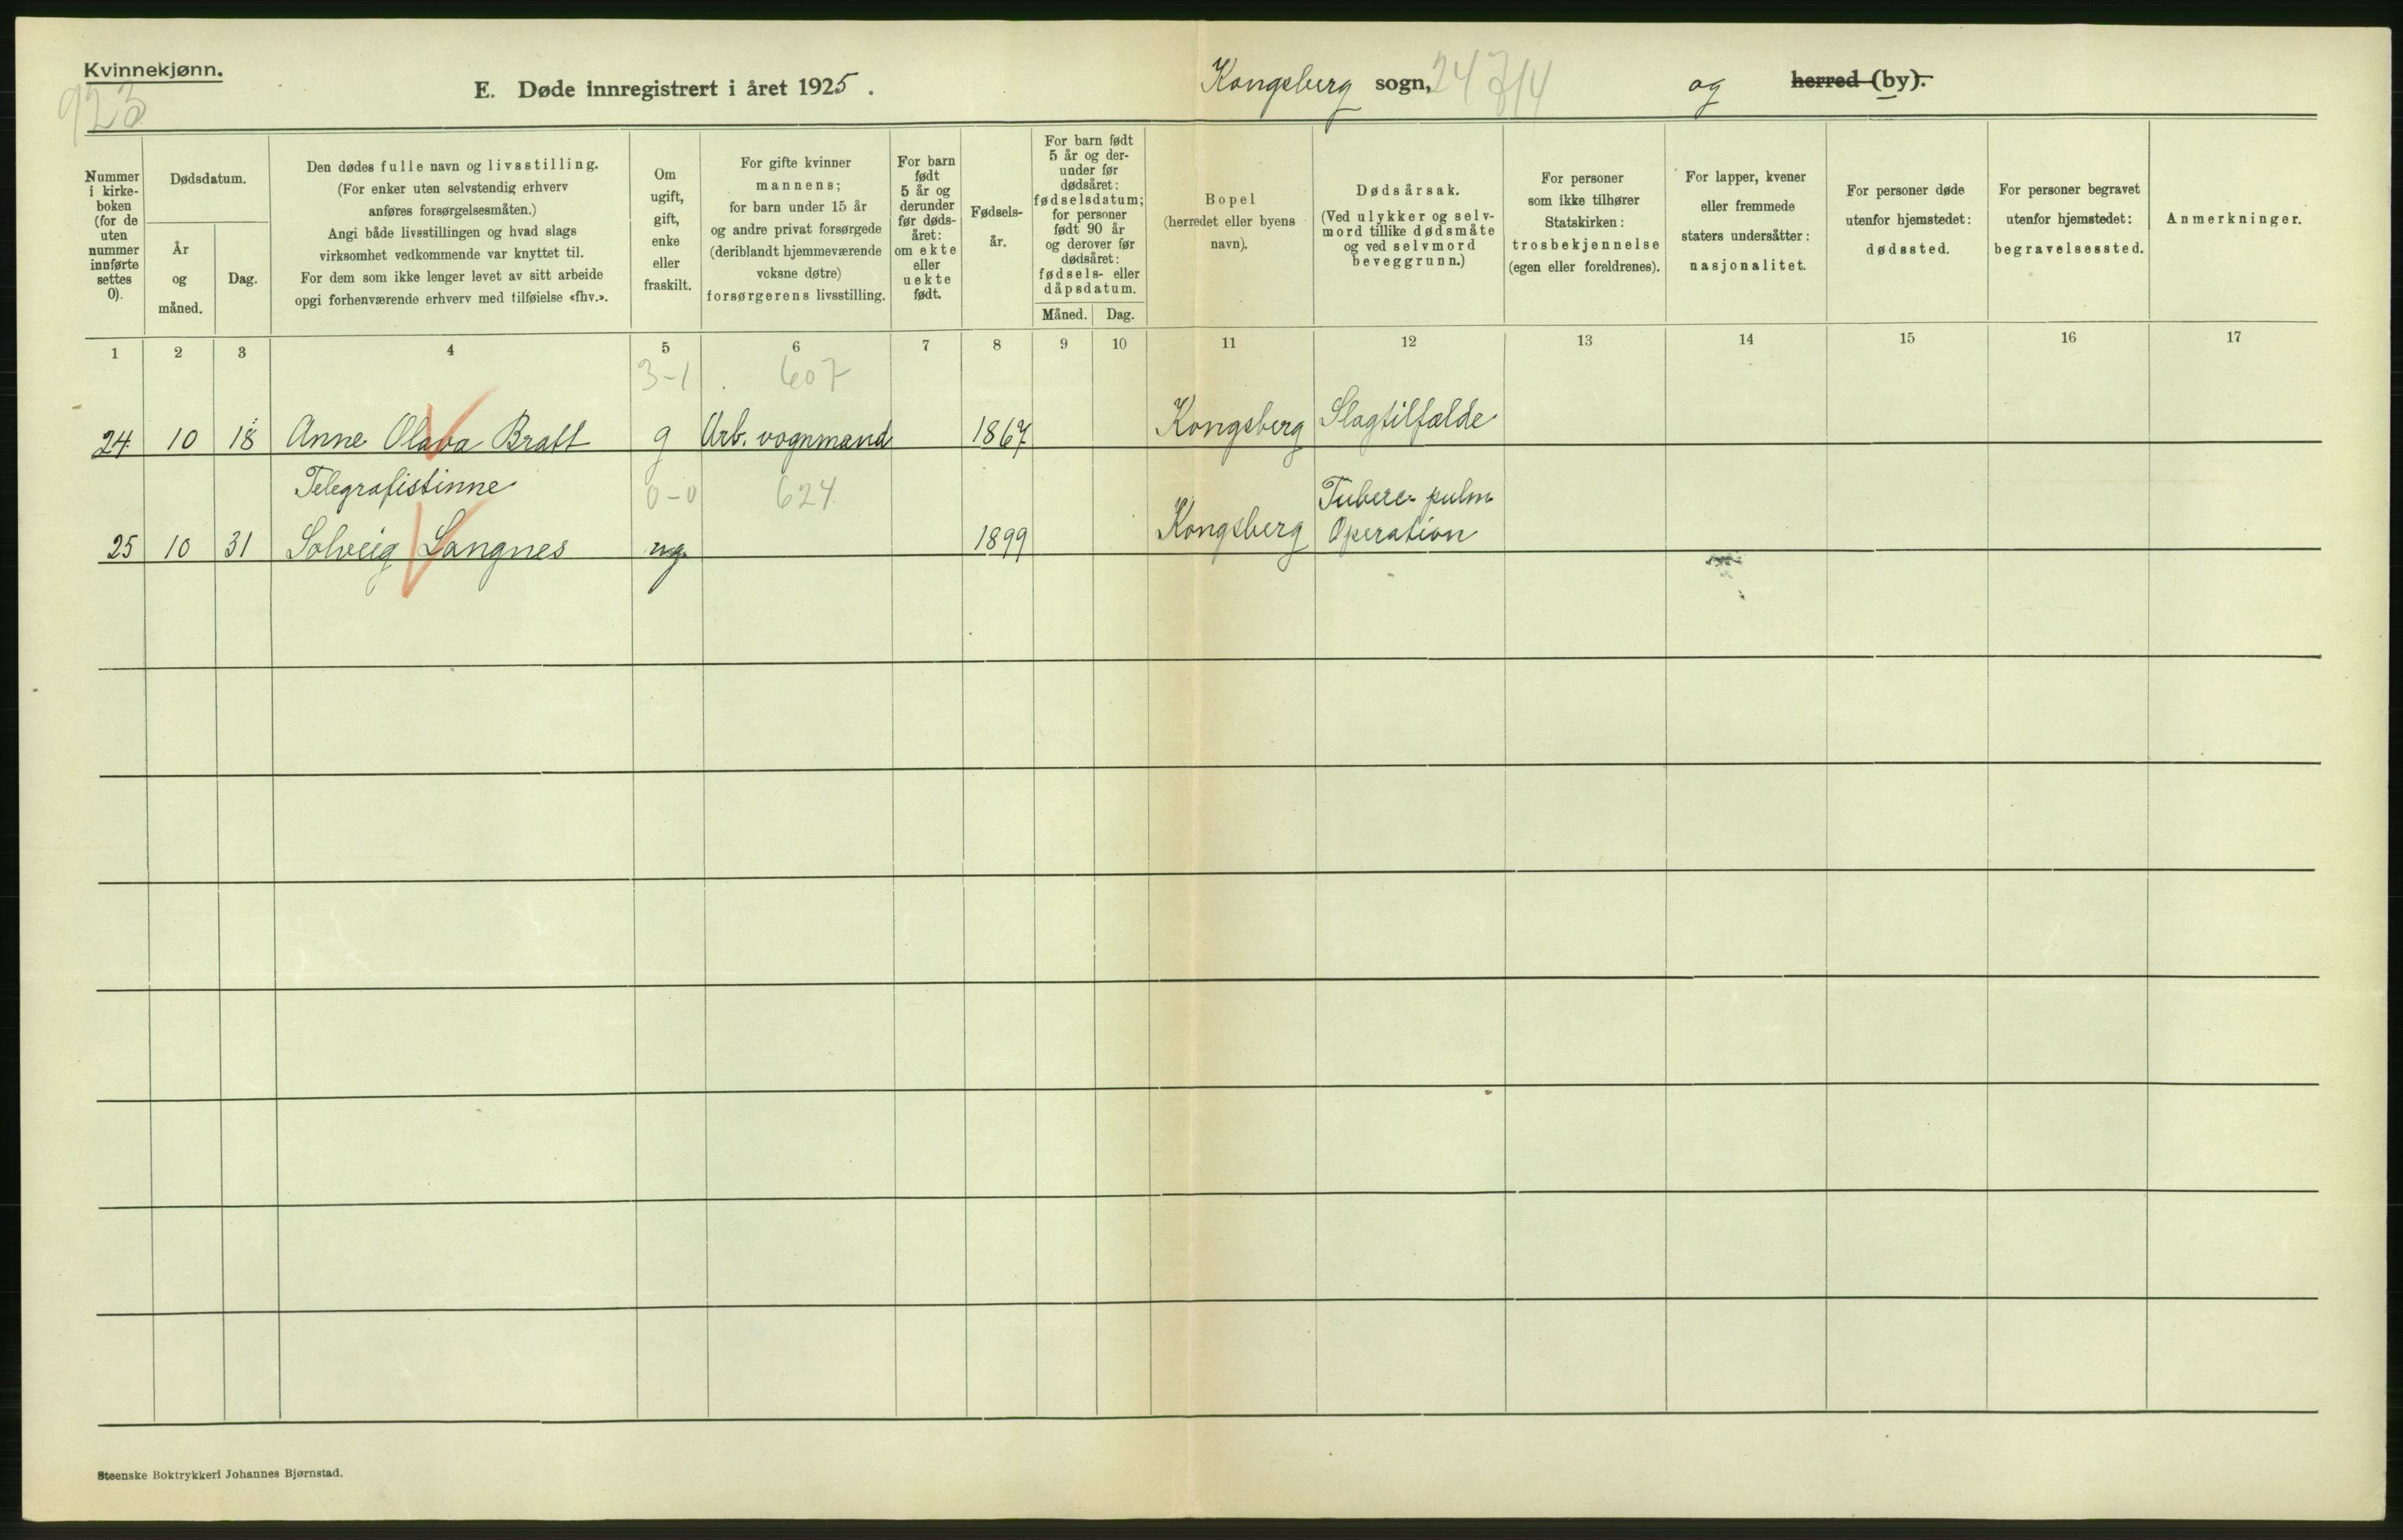 Kvinnekjønn.
923
E. Døde innregistrert i året 1925.
Kongsberg sogn, og herred (by).
Nummer i kirke-boken (for de uten nummer innførte settes 0).
Dødsdatum.
År og måned.
Dag.
Den dødes fulle navn og livsstilling.
(For enker uten selvstendig erhverv
anføres forsørgelsesmåten.)
Angi både livsstillingen og hvad slags
virksomhet vedkommende var knyttet til.
For dem som ikke lenger levet av sitt arbeide
opgi forhenværende erhverv med tilføielse «fhv.».
Om ugift, gift, enke eller fraskilt.
For gifte kvinner
mannens;
for barn under 15 år
og andre privat forsørgede
(deriblandt hjemmeværende
voksne døtre)
forsørgerens livsstilling.
For barn født 5 år og derunder før døds-året: om ekte eller uekte født.
Fødsels-år.
For barn født 5 år og der-under før dødsåret: fødselsdatum; for personer født 90 år og derover før dødsåret: fødsels- eller dåpsdatum.
Måned. Dag.
Bopel
(herredet eller byens
navn).
Dødsårsak.
(Ved ulykker og selv-
mord tillike dødsmåte
og ved selvmord
beveggrunn.)
For personer
som ikke tilhører
Statskirken:
trosbekjennelse
(egen eller foreldrenes).
For lapper, kvener
eller fremmede
staters undersåtter:
nasjonalitet.
For personer døde
utenfor hjemstedet:
dødssted.
For personer begravet
utenfor hjemstedet:
begravelsessted.
Anmerkninger.
1 2 3 4 5 6 7 8 9 10 11 12 13 14 15 16 17
3-1 607
24 10 18 Anne Olava Bratt g Arb. vognmand 1867 Kongsberg Slagtilfælde
Telegrafistinne 0-0 624 Tuberc. pulm
25 10 31 Solveig Langnes ug. 1899 Kongsberg Operation
Steenske Boktrykkeri Johannes Bjørnstad.